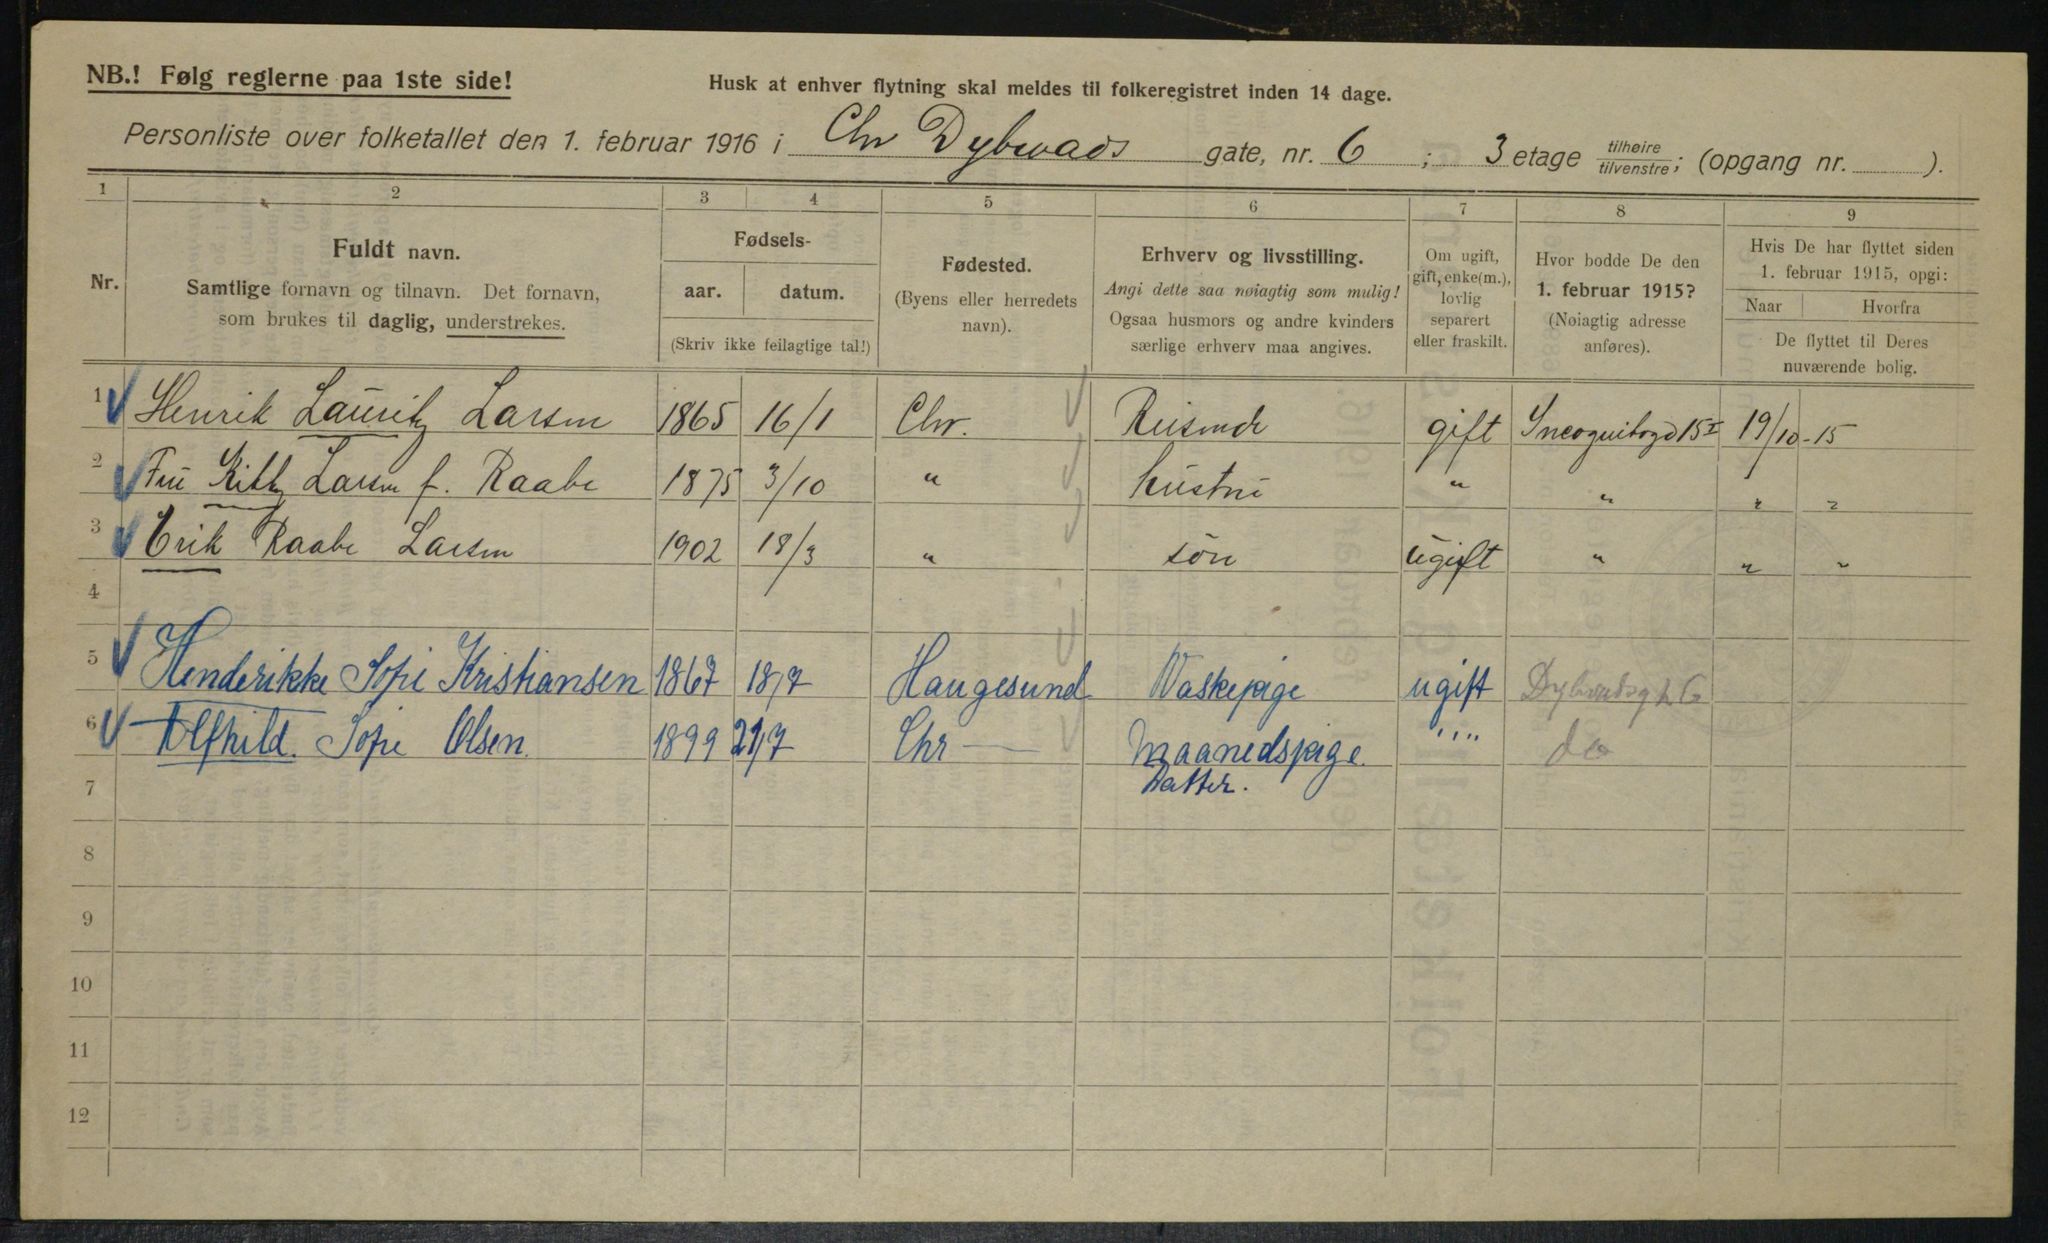 NB.! Følg reglerne paa 1ste side!
Husk at enhver flytning skal meldes til folkeregistret inden 14 dage.
Personliste over folketallet den 1. februar 1916 i Chr Dybwads gate, nr. 6 ; 3 etage tilhøire tilvenstre; (opgang nr. ).
1 2 3 4 5 6 7 8 9
Nr.
Fuldt navn.
Samtlige fornavn og tilnavn. Det fornavn,
som brukes til daglig, understrekes.
Fødsels-
aar. datum.
(Skriv ikke feilagtige tal!)
Fødested.
(Byens eller herredets
navn).
Erhverv og livsstilling.
Angi dette saa nøiagtig som mulig!
Ogsaa husmors og andre kvinders
særlige erhverv maa angives.
Om ugift,
gift, enke(m.),
lovlig
separert
eller fraskilt.
Hvor bodde De den
1. februar 1915?
(Nøiagtig adresse
anføres).
Hvis De har flyttet siden
1. februar 1915, opgi:
Naar Hvorfra
De flyttet til Deres
nuværende bolig.
1 Henrik Lauritz Larsen 1865 16/1 Chr. Reisende gift Incognitogd 15 I 19/10-15
2 Fru Kitty Larsen f. Raabe 1875 3/10 " hustru " " " "
3 Erik Raabe Larsen 1902 18/3 " søn ugift " " "
4
5 Henderikke Sofie Kristiansen 1867 18/7 Haugesund Vaskepige ugift Dybwadsgt 6
6 Alfhild Sofie Olsen. 1899 21/7 Chr — Maanedspige """ do
Datter.
7
8
9
10
11
12